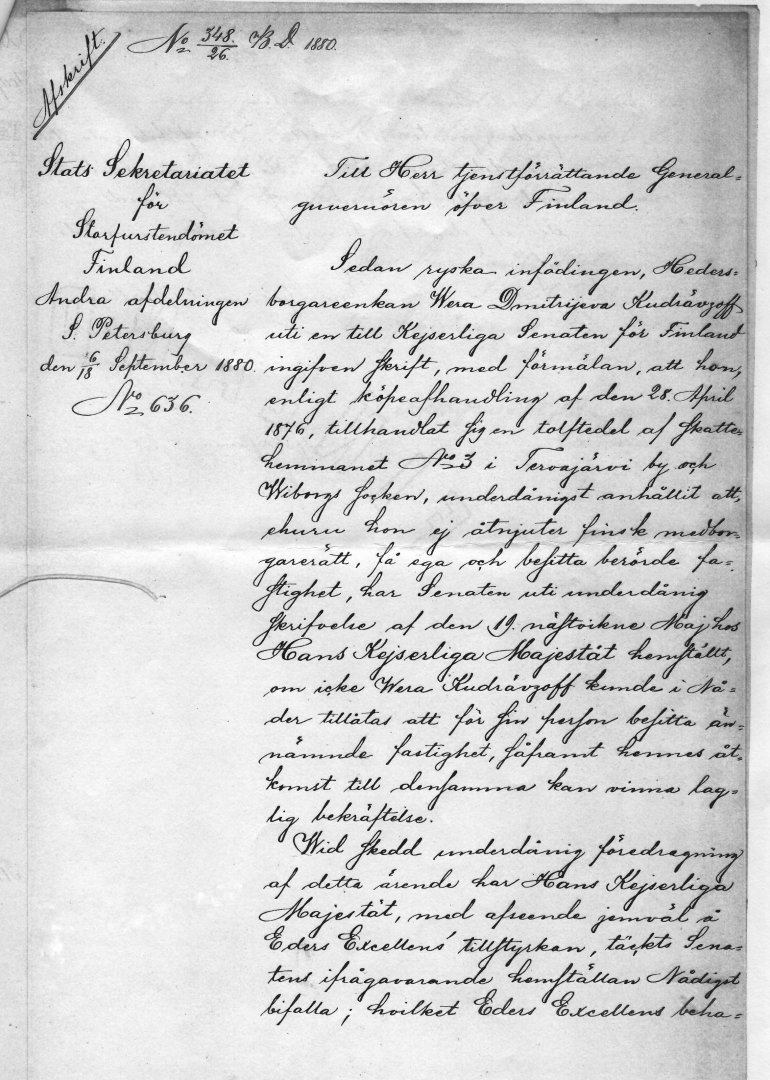 Afskrift.
No 348./26. B.D. 1880.
Stats Sekretariatet
för
Storfurstendömet
Finland
Andra afdelningen
S. Petersburg
den 6/18 September 1880.
No 636.
Till Herr tjenstförrättande General-
guvernören öfver Finland.
Sedan ryska infödingen, Heders-
borgareenkan Wera Dmitrijeva Kudrävzoff
uti en till Kejserliga Senaten för Finland
ingifven skrift, med förmälan, att hon,
enligt köpeafhandling af den 28. April
1876, tillhandlat sig en tolftedel af skatte-
hemmanet No 3 i Tervajärvi by och
Wiborgs socken, underdånigst anhållit att,
ehuru hon ej åtnjuter finsk medbor-
garerätt, få ega och besitta berörde fa-
stighet, har Senaten uti underdånig
skrifvelse af den 19. nästvikne Maj hos
Hans Kejserliga Majestät hemstält,
om icke Wera Kudrävzoff kunde i Nå-
der tillåtas att för sin person besitta än-
nämnde fastighet, såframt hennes åt-
komst till densamma kan vinna lag-
lig bekräftelse.
Wid skedd underdånig föredragning
af detta ärende har Hans Kejserliga
Majestät, med afseende jemväl å
Eders Excellens' tillstyrkan, täckts Sena-
tens ifrågavarande hemställan Nådigst
bifalla; hvilket Eders Excellens beha-